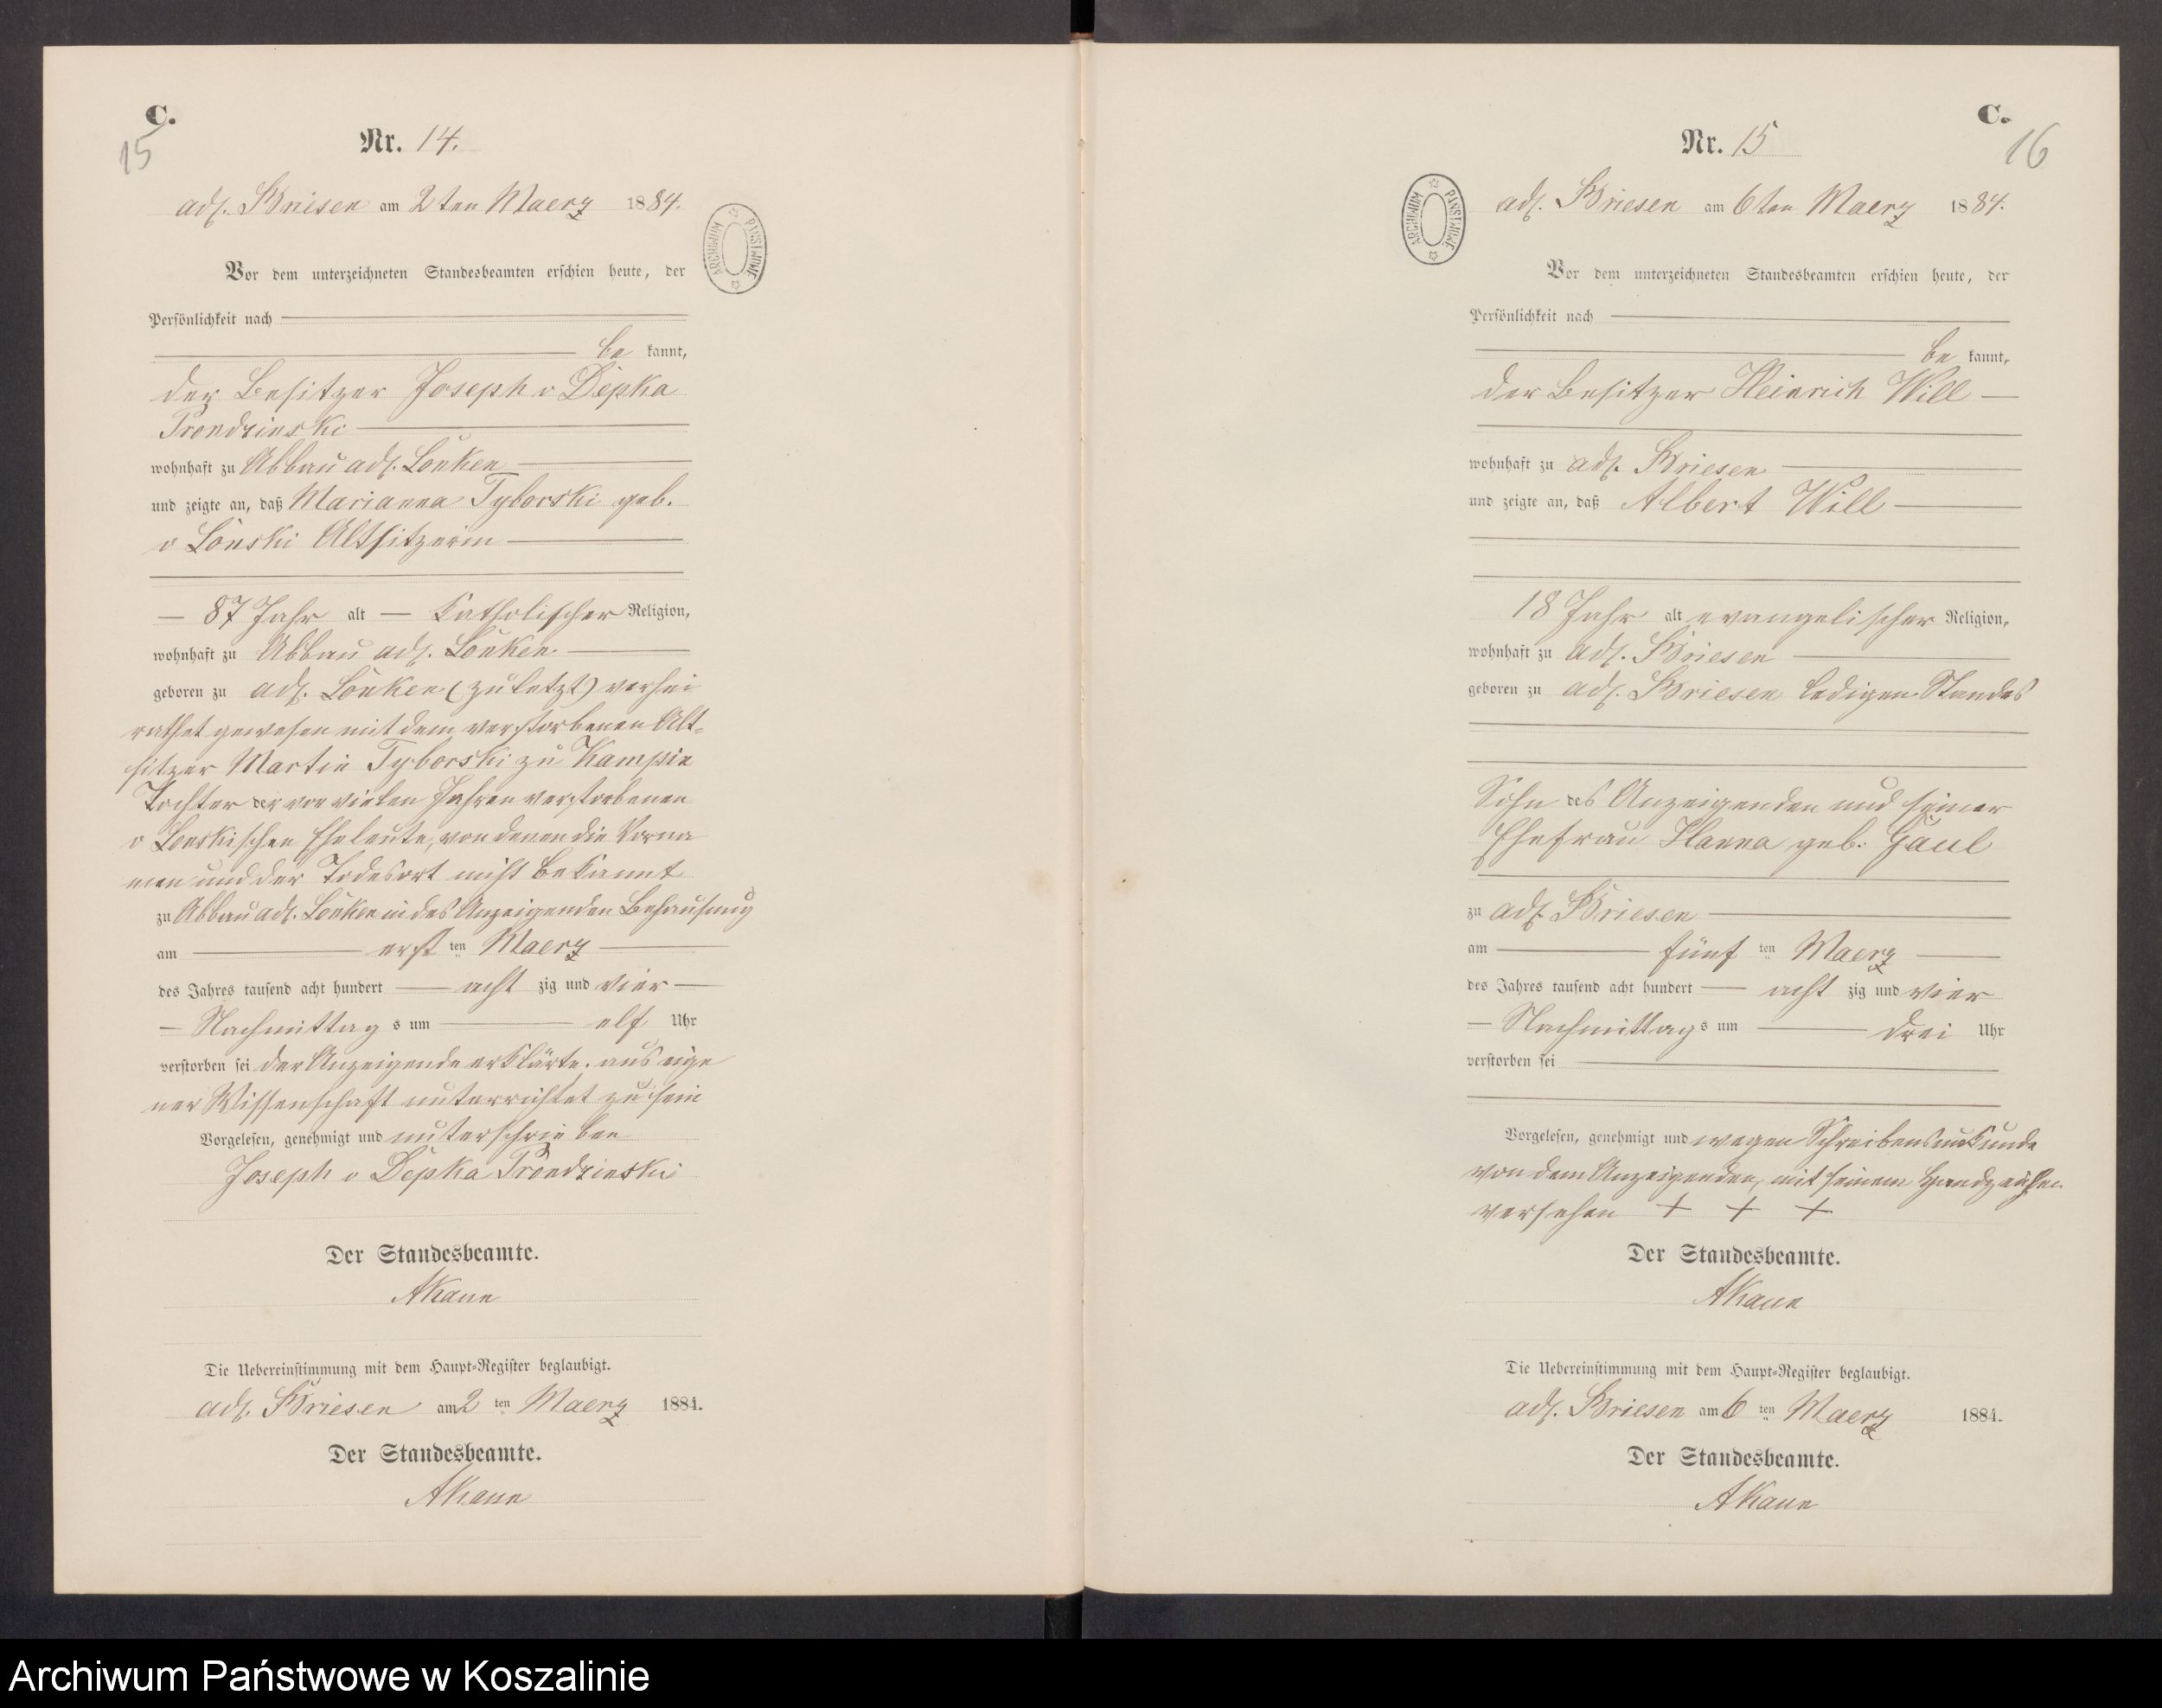 C.
15
Nr. 14.
adl. Briesen am 2ten Maerz 1884.
ARCHIWUM PAŃSTWOWE
Vor dem unterzeichneten Standesbeamten erschien heute, der
Persönlichkeit nach
be kannt,
der Besitzer Joseph v Depka
Prondzinski
wohnhaft zu Abbau adl. Lonken
und zeigte an, daß Marianna Tyborski geb.
v Lonski Altsitzerin
87 Jahr alt katholischer Religion,
wohnhaft zu Abbau adl. Lonken
geboren zu adl. Lonken (zuletzt) verhei
rathet gewesen mit dem verstorbenen Alt-
sitzer Martin Tyborski zu Kampin
Tochter der vor vielen Jahren verstorbenen
v Lonskischen Eheleute, von denen die Vorna
men und der Todesort nicht bekannt
zu Abbau adl. Lonken in des Anzeigenden Behausung
am erst ten Maerz
des Jahres tausend acht hundert acht zig und vier
Nachmittag s um elf Uhr
verstorben sei der Anzeigende erklärte, aus eige
ner Wissenschaft unterrichtet zu sein
Vorgelesen, genehmigt und unterschrieben
Joseph v Depka Prondzinski
Der Standesbeamte.
AKaun
Die Uebereinstimmung mit dem Haupt-Register beglaubigt.
adl. Briesen am 2 ten Maerz 1884.
Der Standesbeamte.
AKaun
C.
16
Nr. 15
adl. Briesen am 6ten Maerz 1884.
ARCHIWUM PAŃSTWOWE
Vor dem unterzeichneten Standesbeamten erschien heute, der
Persönlichkeit nach
be kannt,
der Besitzer Heinrich Will
wohnhaft zu adl. Briesen
und zeigte an, daß Albert Will
18 Jahr alt evangelischer Religion,
wohnhaft zu adl. Briesen
geboren zu adl. Briesen ledigen Standes
Sohn des Anzeigenden und seiner
Ehefrau Hanna geb. Gaul
zu adl. Briesen
am fünf ten Maerz
des Jahres tausend acht hundert acht zig und vier
Nachmittag s um drei Uhr
verstorben sei
Vorgelesen, genehmigt und wegen Schreibensunkunde
von dem Anzeigenden, mit seinem Handzeichen
versehen + + +
Der Standesbeamte.
AKaun
Die Uebereinstimmung mit dem Haupt-Register beglaubigt.
adl. Briesen am 6 ten Maerz 1884.
Der Standesbeamte.
AKaun
Archiwum Państwowe w Koszalinie